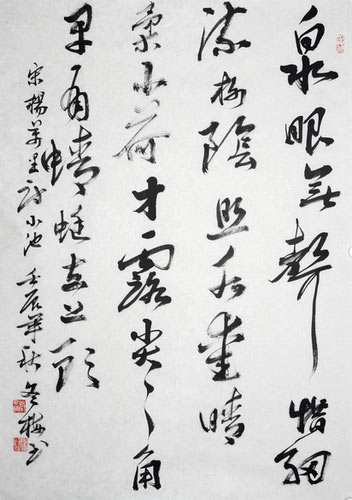 泉眼無聲惜細
流樹陰照水愛晴
柔小荷才露尖々角
早有蜻蜓立上頭
宋楊萬里詩小池 壬辰年秋 冬梅书